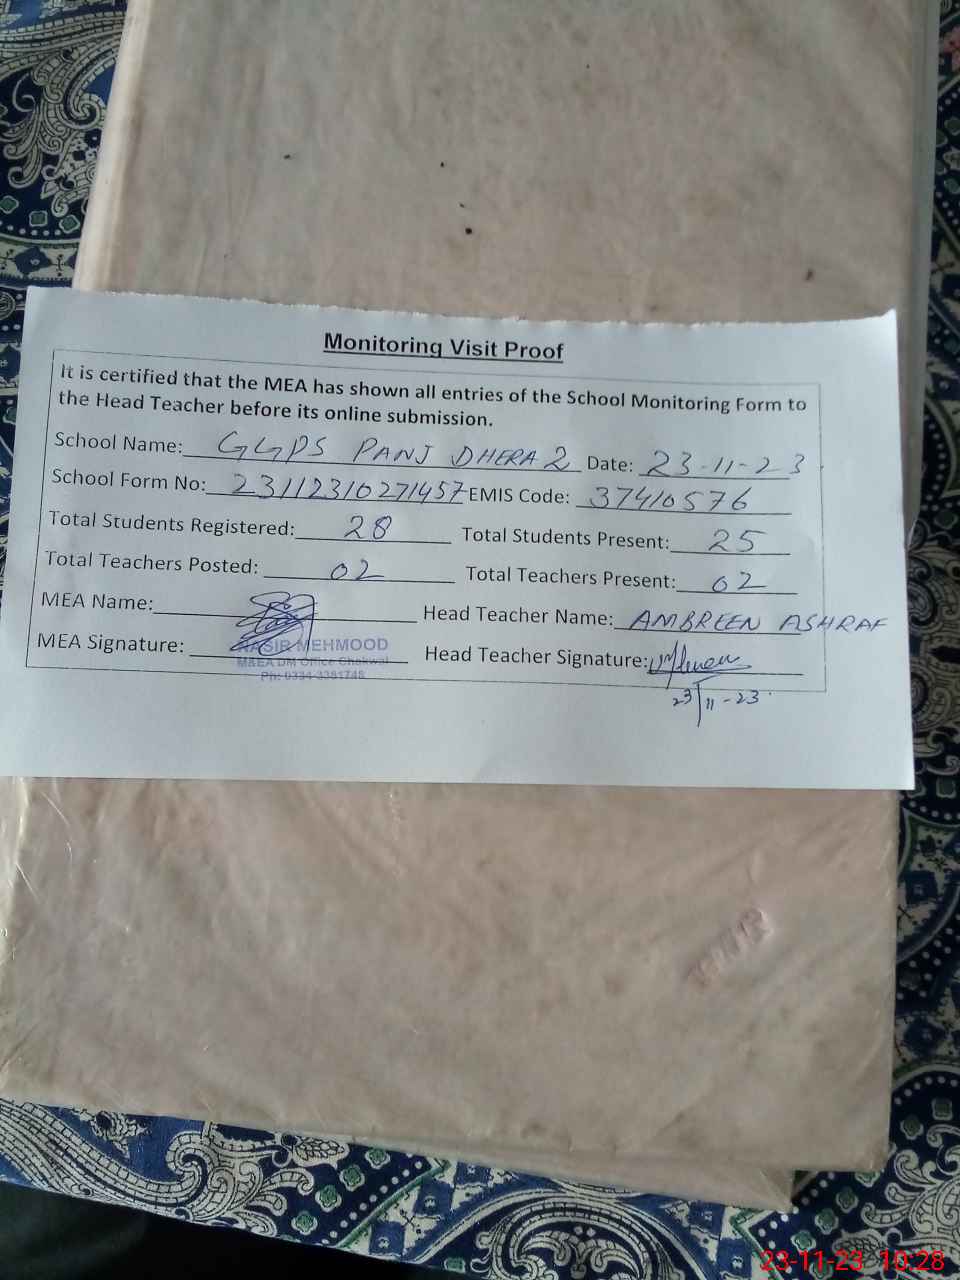 Monitoring Visit Proof
It is certified that the MEA has shown all entries of the School Monitoring Form to
the Head Teacher before its online submission.
School Name: GGPS PANJ DHERA 2 Date: 23-11-23
School Form No: 23112310271457 EMIS Code: 37410576
Total Students Registered: 28 Total Students Present: 25
Total Teachers Posted: 02 Total Teachers Present: 02
MEA Name: Head Teacher Name: AMBREEN ASHRAF
MEA Signature: NASIR MEHMOOD Head Teacher Signature:
M&EA DM Office Chakwal
Ph: 0334-
23/11-23
23-11-23 10:28